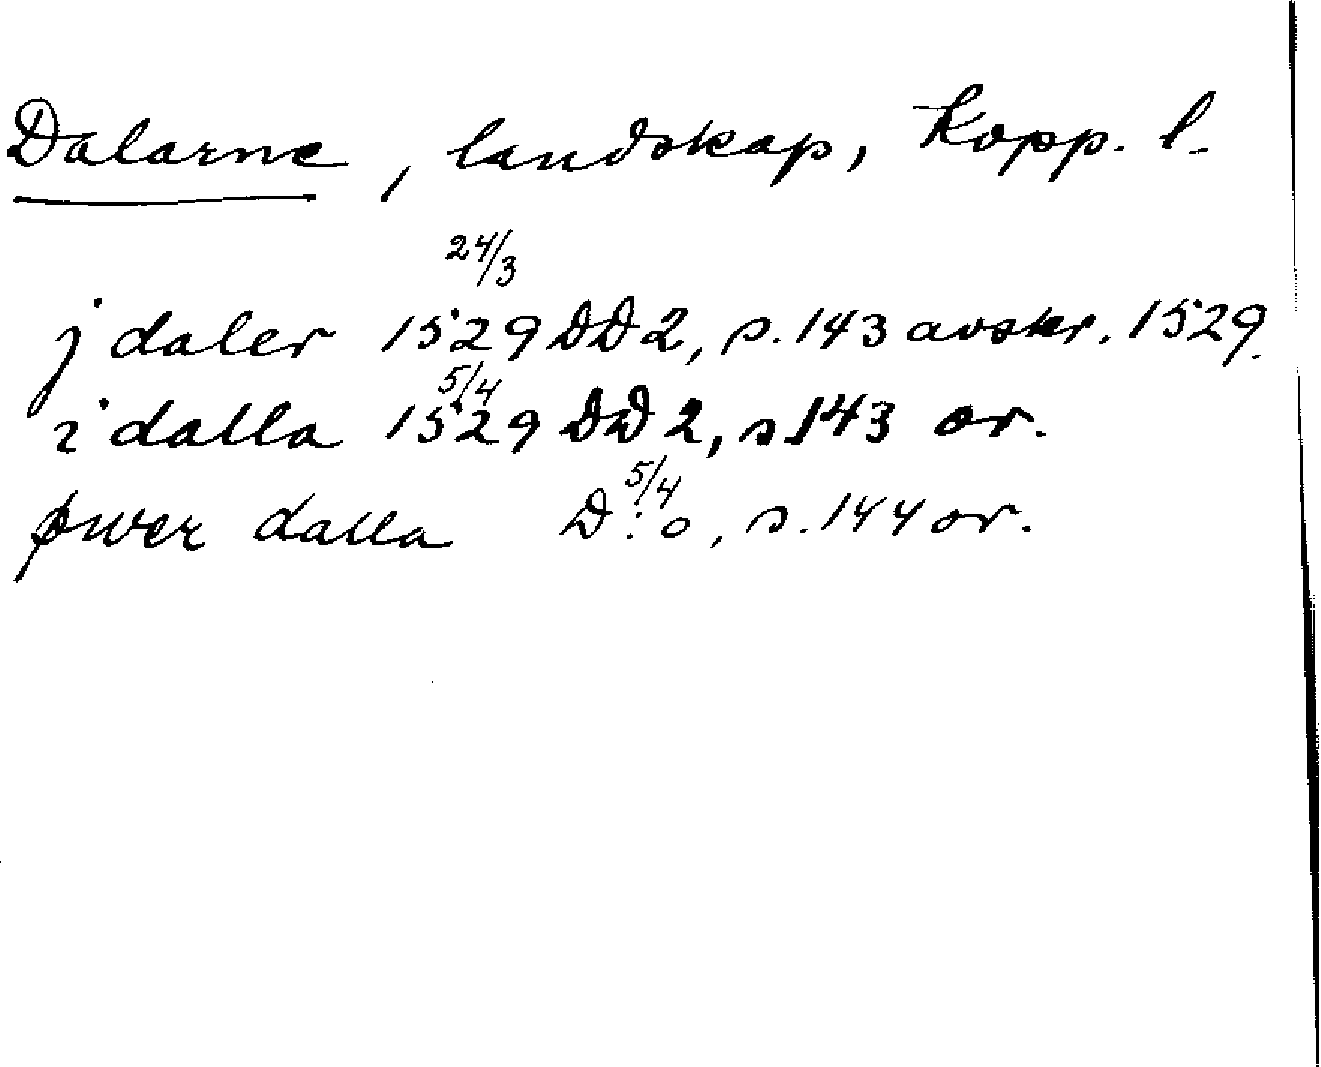 Dalarne, landskap, Kopp. l.
24/3
j daler 1529 DD 2, s. 143 avskr. 1529.
5/4
i dalla 1529 DD 2, s. 143 or.
5/4
øwer dalla D:o, s. 144 or.